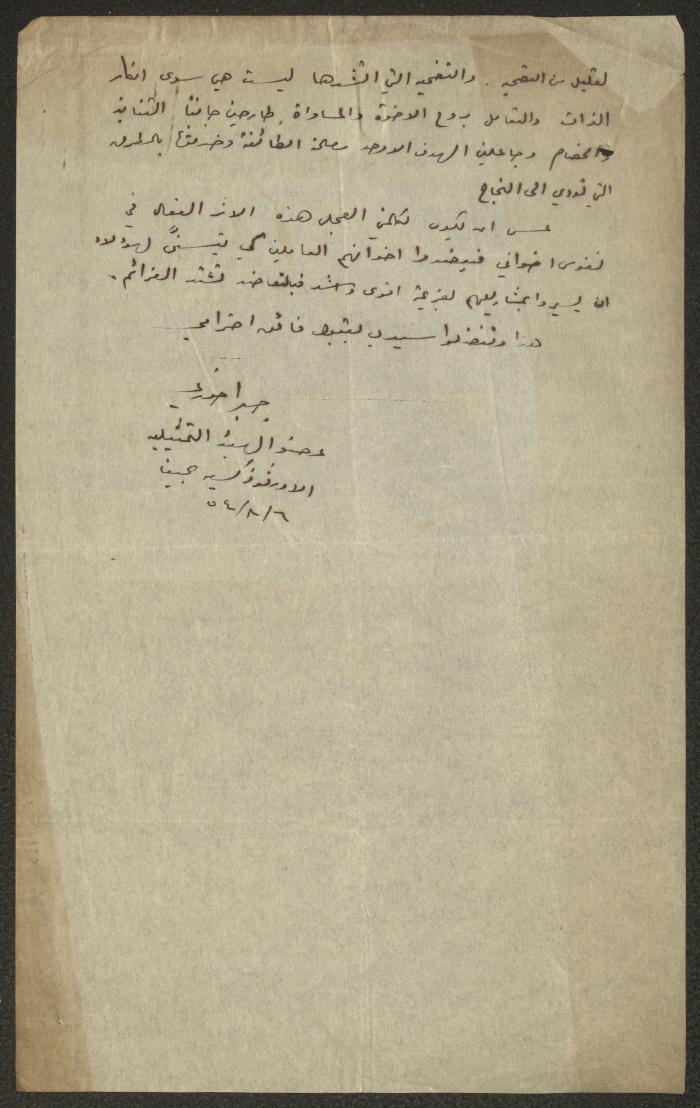 لقليل من التضحية. والتضحيه التي انشدها ليست هي سوى انكار
الذات والتعامل بروح الاخوة والمساواة، طارحين جانبًا التنابذ
والخصام وجاعلين الهدف الاوحد مصلحة الطائفة وخدمتها بالطرق
التي تؤدي الى النجاح
عسى ان تكون لكلمتي العجلى هذه الاثر الفعال في
نفوس اخواني فيعضدوا اخوانهم العاملين كي يتسنى لهؤلاء
ان يسيروا بمشاريعهم بعزيمة اقوى واشد فبالتعاضد تشتد العزائم.
هذا وتفضلوا سيدي بقبول فائق احترامي
جبرا خوري
عضو الهيئة التمثيليه
الاورثوذكسيه بحيفا
٥٤/٨/٦